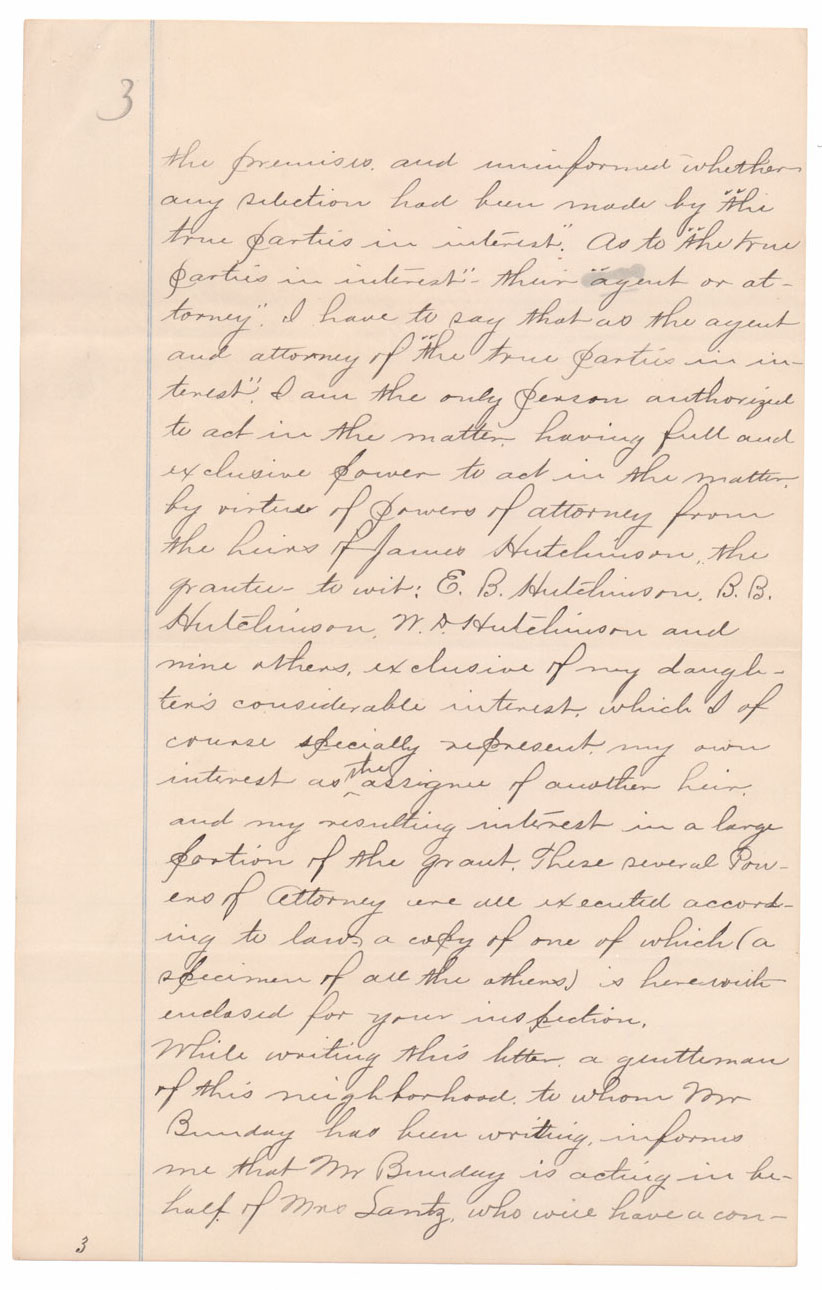 3
the premises, and uninformed whether
any selection had been made by "the
true parties in interest". As to "the true
parties in interest"- their "agent or at-
torney". I have to say that as the agent
and attorney of "the true parties in in-
terest", I am the only person authorized
to act in the matter, having full and
exclusive power to act in the matter,
by virtue of powers of attorney from
the heirs of James Hutchinson, the
grantee- to wit: E. B. Hutchinson, B. B.
Hutchinson, W. D. Hutchinson and
nine others, exclusive of my daugh-
ter's considerable interest, which I of
course specially represent, my own
interest as the assignee of another heir,
and my resulting interest in a large
portion of the grant. These several Pow-
ers of Attorney are all executed accord-
ing to law, a copy of one of which (a
specimen of all the others) is herewith
enclosed for your inspection.
While writing this letter, a gentleman
of this neighborhood, to whom Mr
Bunday has been writing, informs
me that Mr Bunday is acting in be-
half of Mrs Lantz, who will have a con-
3